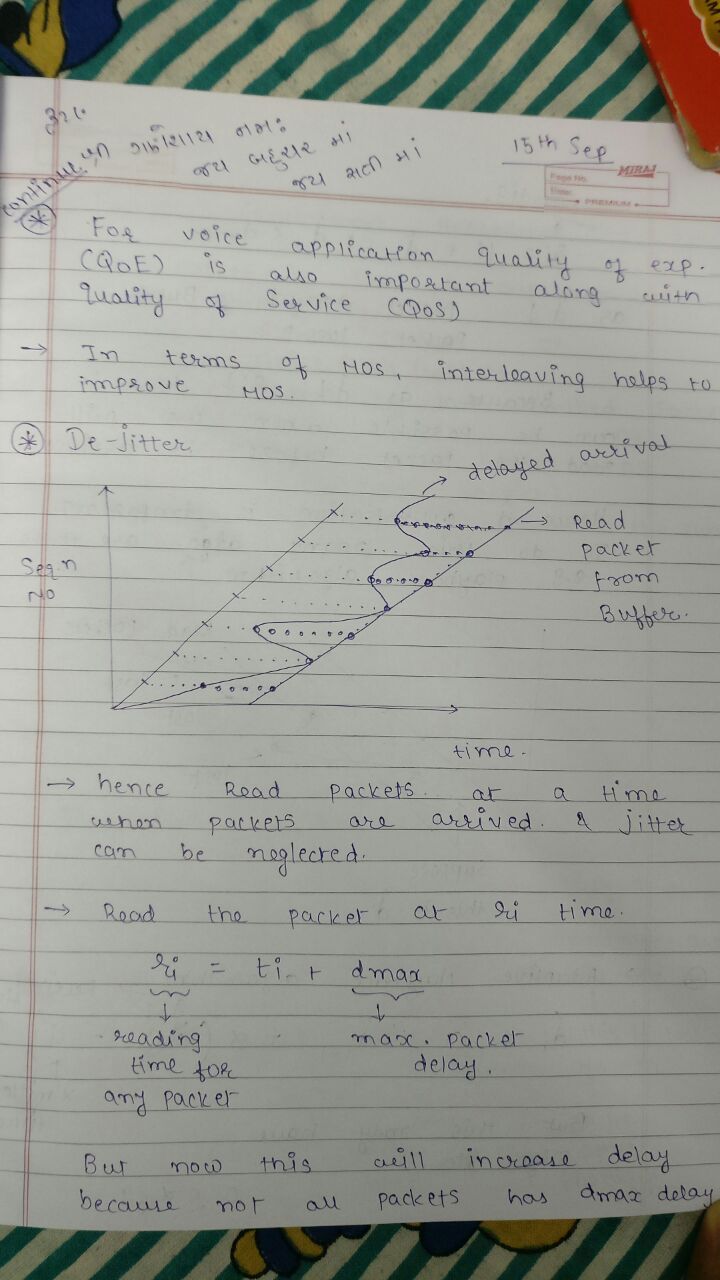 શ્રી ગણેશાય નમઃ
જય બહુચર માં
જય સતી માં
15th Sep
MIRAJ
Page No.
Date:
PREMIUM
continue.
* For voice application quality of exp.
(QoE) is also important along with
quality of Service (QoS)
→ In terms of MOS, interleaving helps to
improve MOS.
* De-jitter
delayed arrival
Seq.n
No
→ Read
packet
from
Buffer.
time.
→ hence Read packets. at a time
when packets are arrived. & jitter
can be neglected.
→ Read the packet at ri time.
ri = ti + dmax
reading
time for
any packet
max. packet
delay.
But now this will increase delay
because not all packets has dmax delay